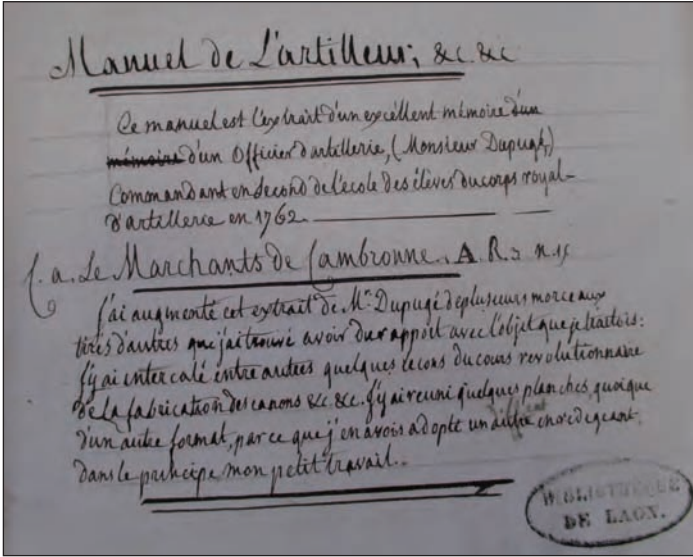 Manuel de L'artilleur; &c &c
Ce manuel est l'extrait d'un excéllent mémoire d'un
mémoire d'un Officier d'artillerie, (Monsieur Dupugé,)
Commandant en second de l'ecole des élèves du corps royal-
d'artillerie en 1762.
f. a. Le Marchants de Cambronne. A. R.
j'ai augmenté cet extrait de Mr. Dupugé de plusieurs morceaux
tirés d'autres que j'ai trouvé avoir du rapport avec l'objet que je traitois:
j'y ai intercalé entre autres quelques lecons du cours revolutionnaire
de la fabrication des canons &c. &c. j'y ai reuni quelques planches, quoique
d'un autre format, parce que j'en avois adopté un autre en redigeant
dans le principe mon petit travail.
BIBLIOTHEQUE
DE LAON.